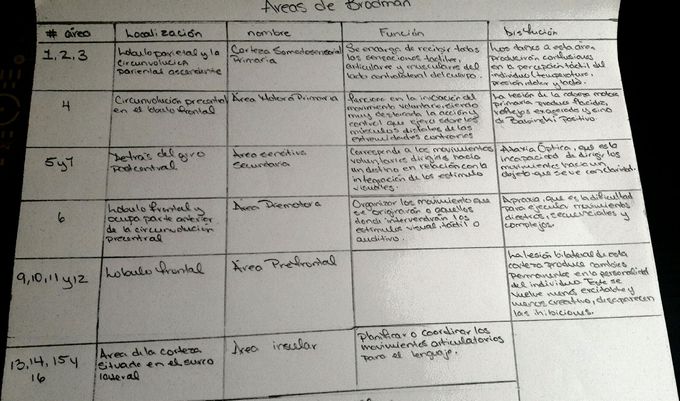 Areas de Brodman
# área Localización nombre Función Disfución
1, 2, 3
Lobulo parietal y la
circunvolución
parietal ascendente
Corteza Somatosensorial
Primaria
Se encarga de recibir todas
las sensaciones táctiles,
articulares y musculares del
lado contralateral del cuerpo.
Los daños a esta área
producirán confusiones
en la percepción táctil del
individuo, temperatura,
presión, dolor y tacto.
4
Circunvolución precentral
en el lóbulo frontal
Área Motora Primaria
Funciona en la iniciación del
movimiento voluntario, siendo
muy destacada la acción y
control que ejerce sobre los
músculos distales de las
extremidades contrarias
La lesión de la corteza motora
primaria produce flacidez,
reflejos exagerado y signo
de Babinski Positivo.
5 y 7
Detrás del giro
Postcentral
Area sensitiva
Secundaria
Corresponde a los movimientos
voluntarios dirigidos hacia
un destino en relación con la
integración de los estímulo
visuales.
Ataxia Óptica, que es la
incapacidad de dirigir los
movimientos hacia un
objeto que se ve con claridad.
6
Lóbulo frontal y
ocupa parte anterior
de la circunvolución
precentral
Área Premotora
Organizar los movimiento que
se originarán o aquellos
donde intervendrán los
estímulos visual, táctil o
auditivo.
Apraxia, que es la dificultad
para ejecutar movimientos
diestros, secuenciales y
complejos.
9, 10, 11 y 12
Lobulo frontal
Área Prefrontal
La lesión bilateral de esta
corteza produce cambios
Permanentes en la personalidad
del individuo. Este se
vuelve menos excitable y
menos creativo, desaparecen
las inhibiciones.
13, 14, 15 y
16
Area de la corteza
situado en el surco
lateral
Área insular
Planificar o coordinar los
movimientos articulatorios
para el lenguaje.